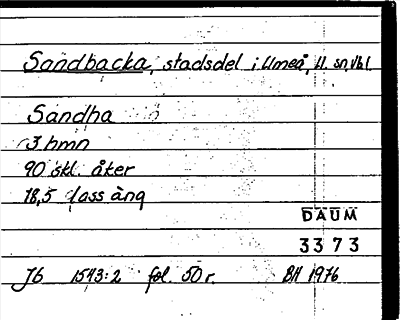 Sandbacka, stadsdel i Umeå, U. sn, Vbl.
Sandha
3 hmn
90 skl. åter
18,5 lass äng
DAUM
3373
Jb 1543:2 fol. 50 r. BH 1976